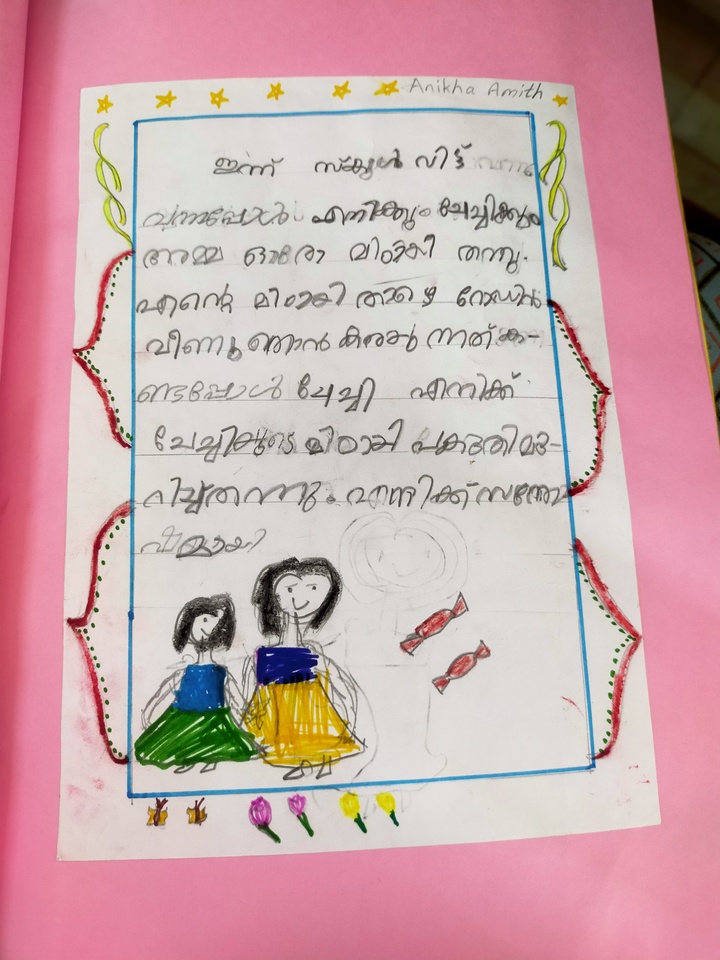 Anikha Amith
ഇന്ന് സ്കൂൾ വിട്ട് വന്നു
വന്നപ്പോൾ എനിക്കും ചേച്ചിക്കും
അമ്മ ഓരോ മിഠായി തന്നു.
എന്റെ മിഠായി താഴെ റോഡിൽ
വീണു ഞാൻ കരയുന്നത് ക-
ണ്ടപ്പോൾ ചേച്ചി എനിക്ക്
ചേച്ചിക്കുടെ മിഠായി പകുതി മു-
റിച്ചുതന്നു. എനിക്ക് സന്തോ
ഷമായി